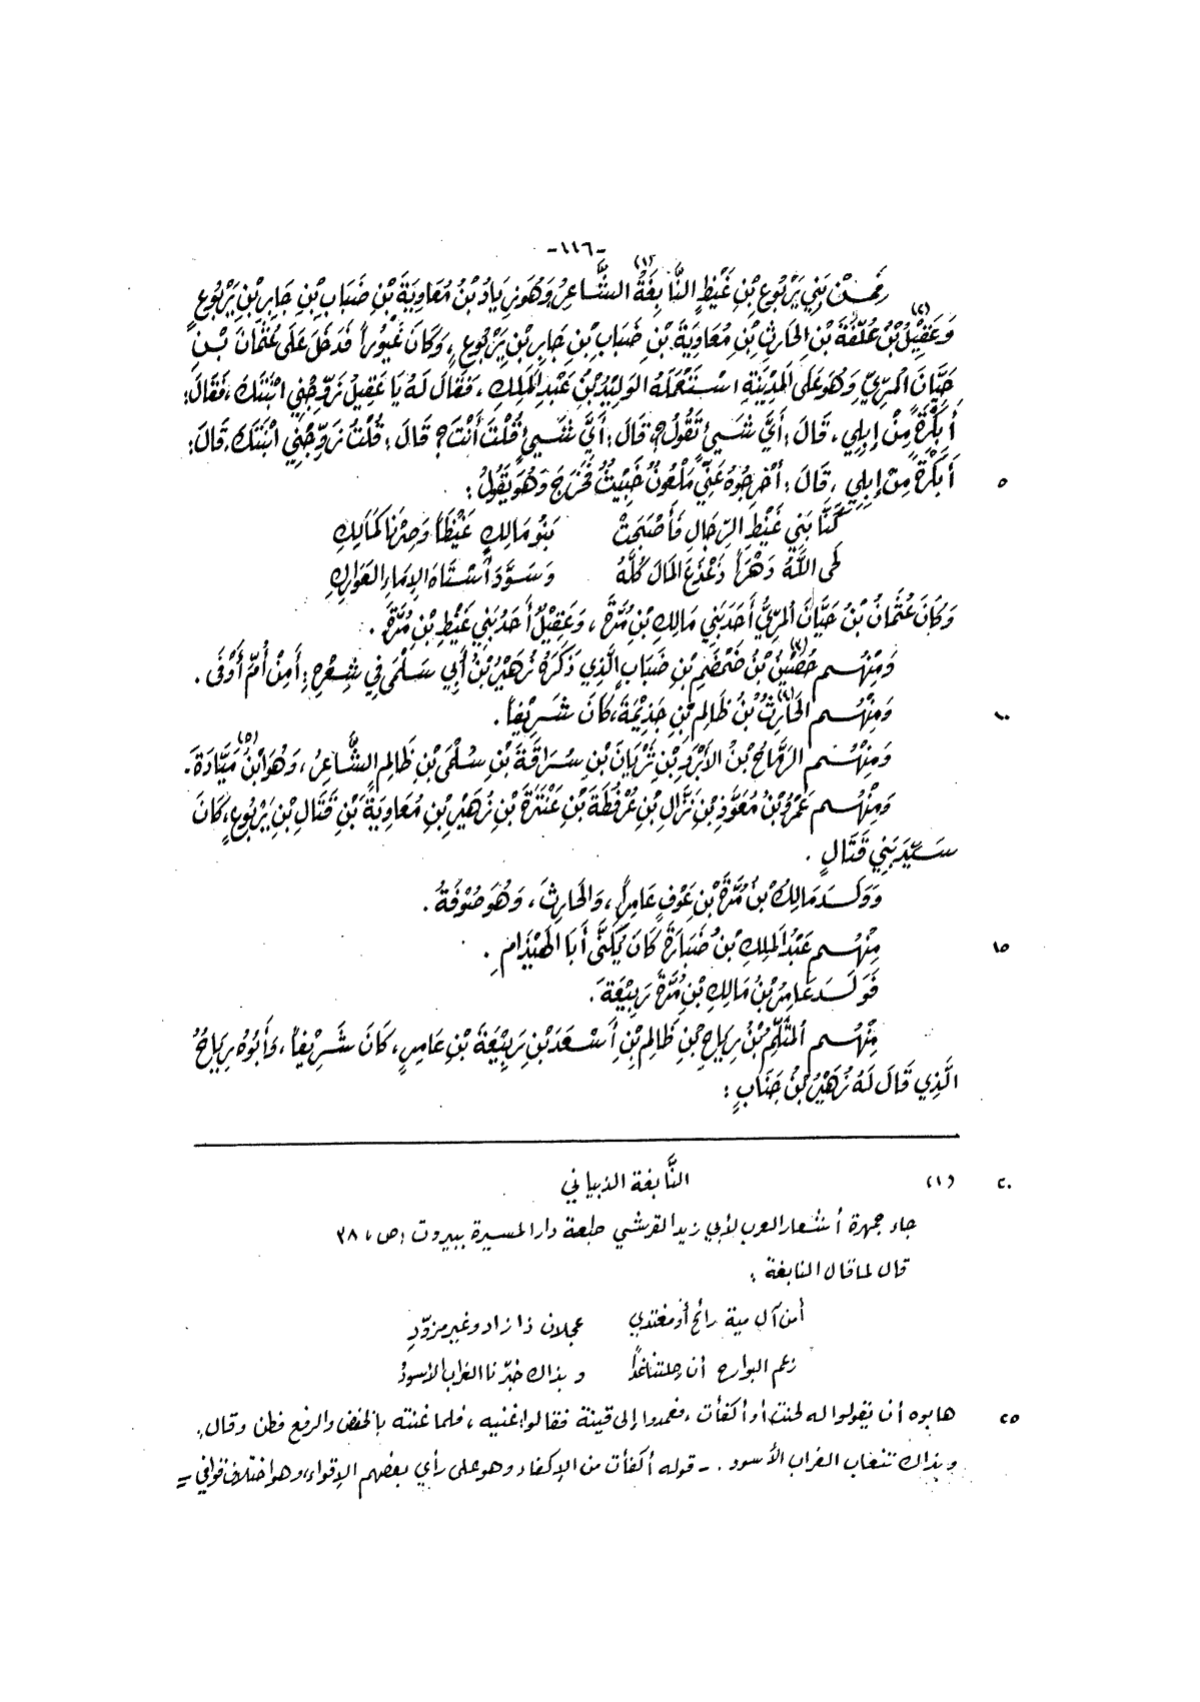 -١١٦-
فَمِنْ بَنِي يَرْبُوعِ بْنِ غَيْظٍ النَّابِغَةُ (١) الشَّاعِرُ وَهُوَ زِيَادُ بْنُ مُعَاوِيَةَ بْنِ ضَبَابِ بْنِ جَابِرِ بْنِ يَرْبُوعٍ
وَعَقِيلُ (٢) بْنُ عُلَّفَةَ بْنِ الحَارِثِ بْنِ مُعَاوِيَةَ بْنِ ضَبَابِ بْنِ جَابِرِ بْنِ يَرْبُوعٍ، وَكَانَ غَيُوراً فَدَخَلَ عَلَى عُثْمَانَ بْنِ
حَيَّانَ المُرِّيِّ وَهُوَ عَلَى المَدِيْنَةِ اسْتَعْمَلَهُ الوَلِيْدُ بْنُ عَبْدِ المَلِكِ، فَقَالَ لَهُ يَا عَقِيلُ زَوِّجْنِي ابْنَتَكَ، فَقَالَ:
أَبَكْرَةً مِنْ إِبِلِي، قَالَ: أَيَّ شَيْئٍ تَقُولُ؟ قَالَ: أَيَّ شَيْئٍ قُلْتَ أَنْتَ؟ قَالَ: قُلْتُ زَوِّجْنِي ابْنَتَكَ، قَالَ:
أَبَكْرَةً مِنْ إِبِلِي، قَالَ: أَخْرِجُوهُ عَنِّي مَلْعُونٌ خَبِيْثٌ فَخَرَجَ وَهُوَ يَقُولُ: ٥
كُنَّا بَنِي غَيْظِ الرِّجَالِ فَأَصْبَحَتْ بَنُو مَالِكٍ غَيْظاً وَصِرْنَا كَمَالِكِ
لَحَى اللَّهُ دَهْرَاً ذَعْذَعَ المَالَ كُلَّهُ وَسَوَّدَ أَسْتَاهَ الإِمَاءِ العَوَارِكِ
وَكَانَ عُثْمَانُ بْنُ حَيَّانَ المُرِّيُّ أَحَدَ بَنِي مَالِكِ بْنِ مُرَّةَ، وَعَقِيْلٌ أَحَدُ بَنِي غَيْظِ بْنِ مُرَّةَ.
وَمِنْهُم حُصَيْنُ (٣) بْنُ ضَمْضَمِ بْنِ ضَبَابٍ الَّذِي ذَكَرَهُ زُهَيْرُ بْنُ أَبِي سَلْمَى فِي شِعْرِهِ: أَمِنْ أُمِّ أَوْفَى.
وَمِنْهُم الحَارِثُ (٤) بْنُ ظَالِمِ بْنِ جَذِيْمَةَ، كَانَ شَرِيْفاً. ١٠
وَمِنْهُم الرَّمَّاحُ بْنُ الأَبْرَدِ بْنِ ثَرْيَانَ بْنِ سُرَاقَةَ بْنِ سُلْمَى بْنِ ظَالِمٍ الشَّاعِرُ، وَهُوَ ابْنُ (٥) مَيَّادَةَ.
وَمِنْهُم عَمْرُو بْنُ مُعَوَّذِ بْنِ نَزَّالِ بْنِ عُرْفُطَةَ بْنِ عَنْتَرَةَ بْنِ زُهَيْرِ بْنِ مُعَاوِيَةَ بْنِ قَتَالِ بْنِ يَرْبُوعٍ، كَانَ
سَيِّدَ بَنِي قَتَالٍ.
وَوَلَدَ مَالِكُ بْنُ مُرَّةَ بْنِ عَوْفٍ عَامِراً، وَالحَارِثَ، وَهُوَ صُوْفَةُ.
مِنْهُم عَبْدُ المَلِكِ بْنُ ضَبَارَةَ كَانَ يُكَنَّى أَبَا الهَيْذَامِ. ١٥
فَوَلَدَ عَامِرُ بْنُ مَالِكِ بْنِ مُرَّةَ رَبِيْعَةَ.
مِنْهُم المُثَلَّمُ بْنُ رِيَاحِ بْنِ ظَالِمِ بْنِ أَسْعَدَ بْنِ رَبِيْعَةَ بْنِ عَامِرٍ، كَانَ شَرِيْفاً، وَأَبُوْهُ رِيَاحُ
الَّذِي قَالَ لَهُ زُهَيْرُ بْنُ جَنَابٍ:
(١) النَّابغة الذبياني ٢٠
جاء جمهرة أشعار العرب لأبي زيد القرشي طبعة دار المسيرة ببيروت، ص، ٣٨
قال لما قال النابغة:
أمن آل مية رائح أو مغتدي عجلان ذا زاد وغير مزوّدِ
زعم البوارح أن رحلتنا غداً وبذاك خبّرنا الغراب الأسودُ
هابوه أن يقولوا له لحنت أو أكفأت، فعمدوا إلى قينة فقالوا غنيه، فلما غنته بالخفض والرفع فطن وقال: ٢٥
وبذاك تنعاب الغراب الأسود. - قوله أكفأت من الإكفاء وهو على رأي بعضهم الإقواء، وهو اختلاف قوافي =